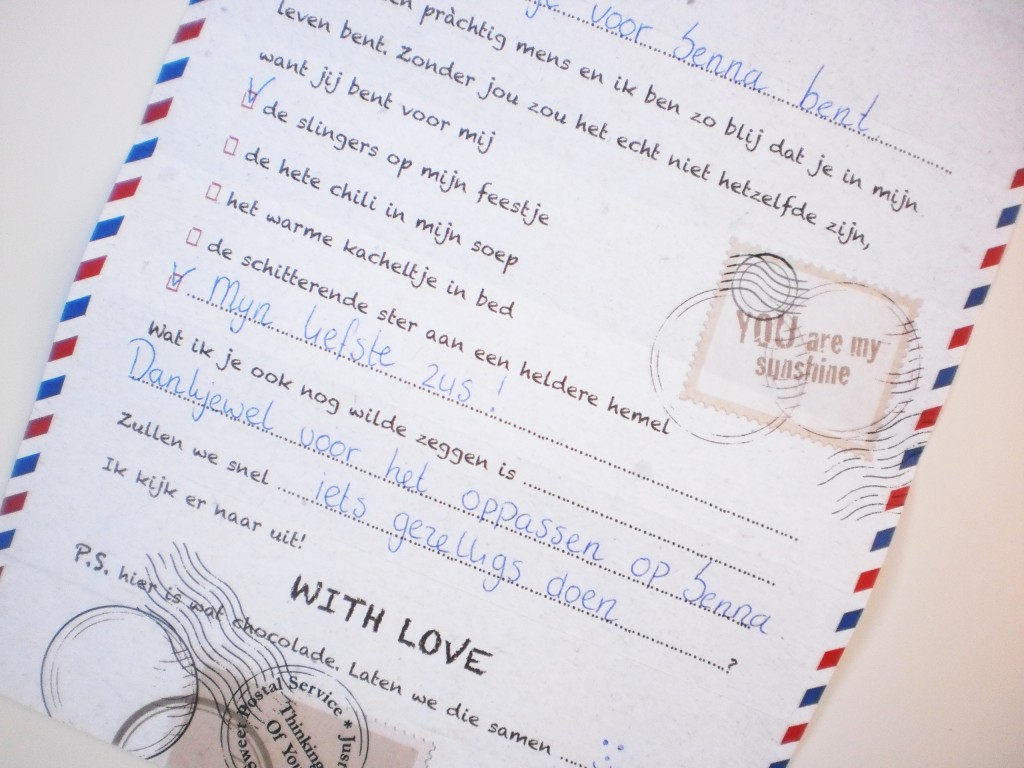 voor Senna bent
pràchtig mens en ik ben zo blij dat je in mijn
leven bent. Zonder jou zou het echt niet hetzelfde zijn,
want jij bent voor mij
de slingers op mijn feestje
de hete chili in mijn soep
het warme kacheltje in bed
de schitterende ster aan een heldere hemel
Mijn liefste zus!
Wat ik je ook nog wilde zeggen is
Dankjewel voor het oppassen op Senna
Zullen we snel iets gezelligs doen ?
Ik kijk er naar uit!
WITH LOVE
P.S. hier is wat chocolade. Laten we die samen
YOU are my
sunshine
Sweet Postal Service * Just
Thinking
Of You